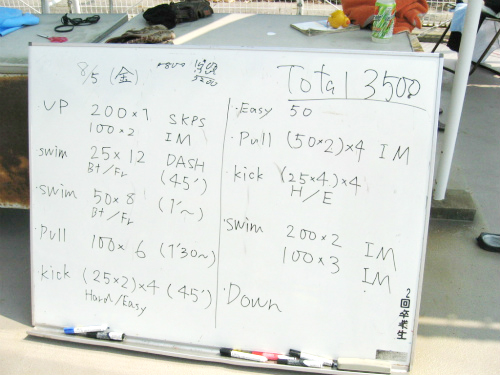 8/5 (金)
UP 200×1 SKPS
100×2 IM
swim 25×12 DASH
Bt/Fr (45')
・swim 50×8 (1'〜)
Bt/Fr
・Pull 100×6 (1'30〜)
・kick (25×2)×4 (45')
Hard/Easy
Total 3500
・Easy 50
・Pull (50×2)×4 IM
・kick (25×4)×4
H/E
・swim 200×2 IM
100×3 IM
・Down
2回卒業生